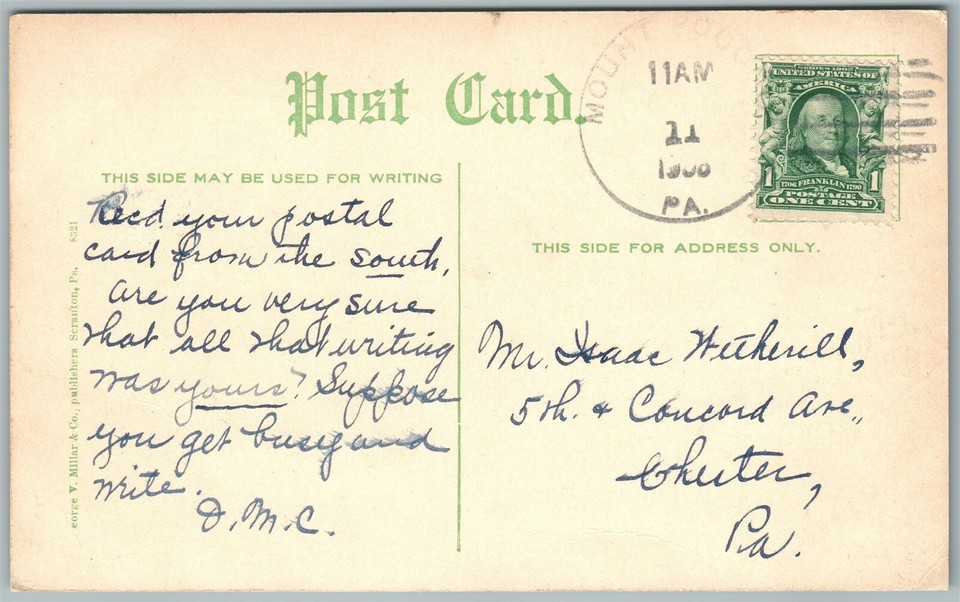 Post Card.
MOUNT POCO
11AM
11
1908
PA.
SERIES 1902
UNITED STATES OF
AMERICA
1 1
1706 FRANKLIN 1790
POSTAGE
ONE CENT
THIS SIDE MAY BE USED FOR WRITING
THIS SIDE FOR ADDRESS ONLY.
Recd. your postal
card from the south,
Are you very sure
that all that writing
was yours? Suppose
you get busy and
write.
D.M.C.
Mr. Isaac Wetherill,
5th. & Concord Ave.,
Chester,
Pa.
eorge V. Millar & Co., publishers Scranton, Pa. 8321